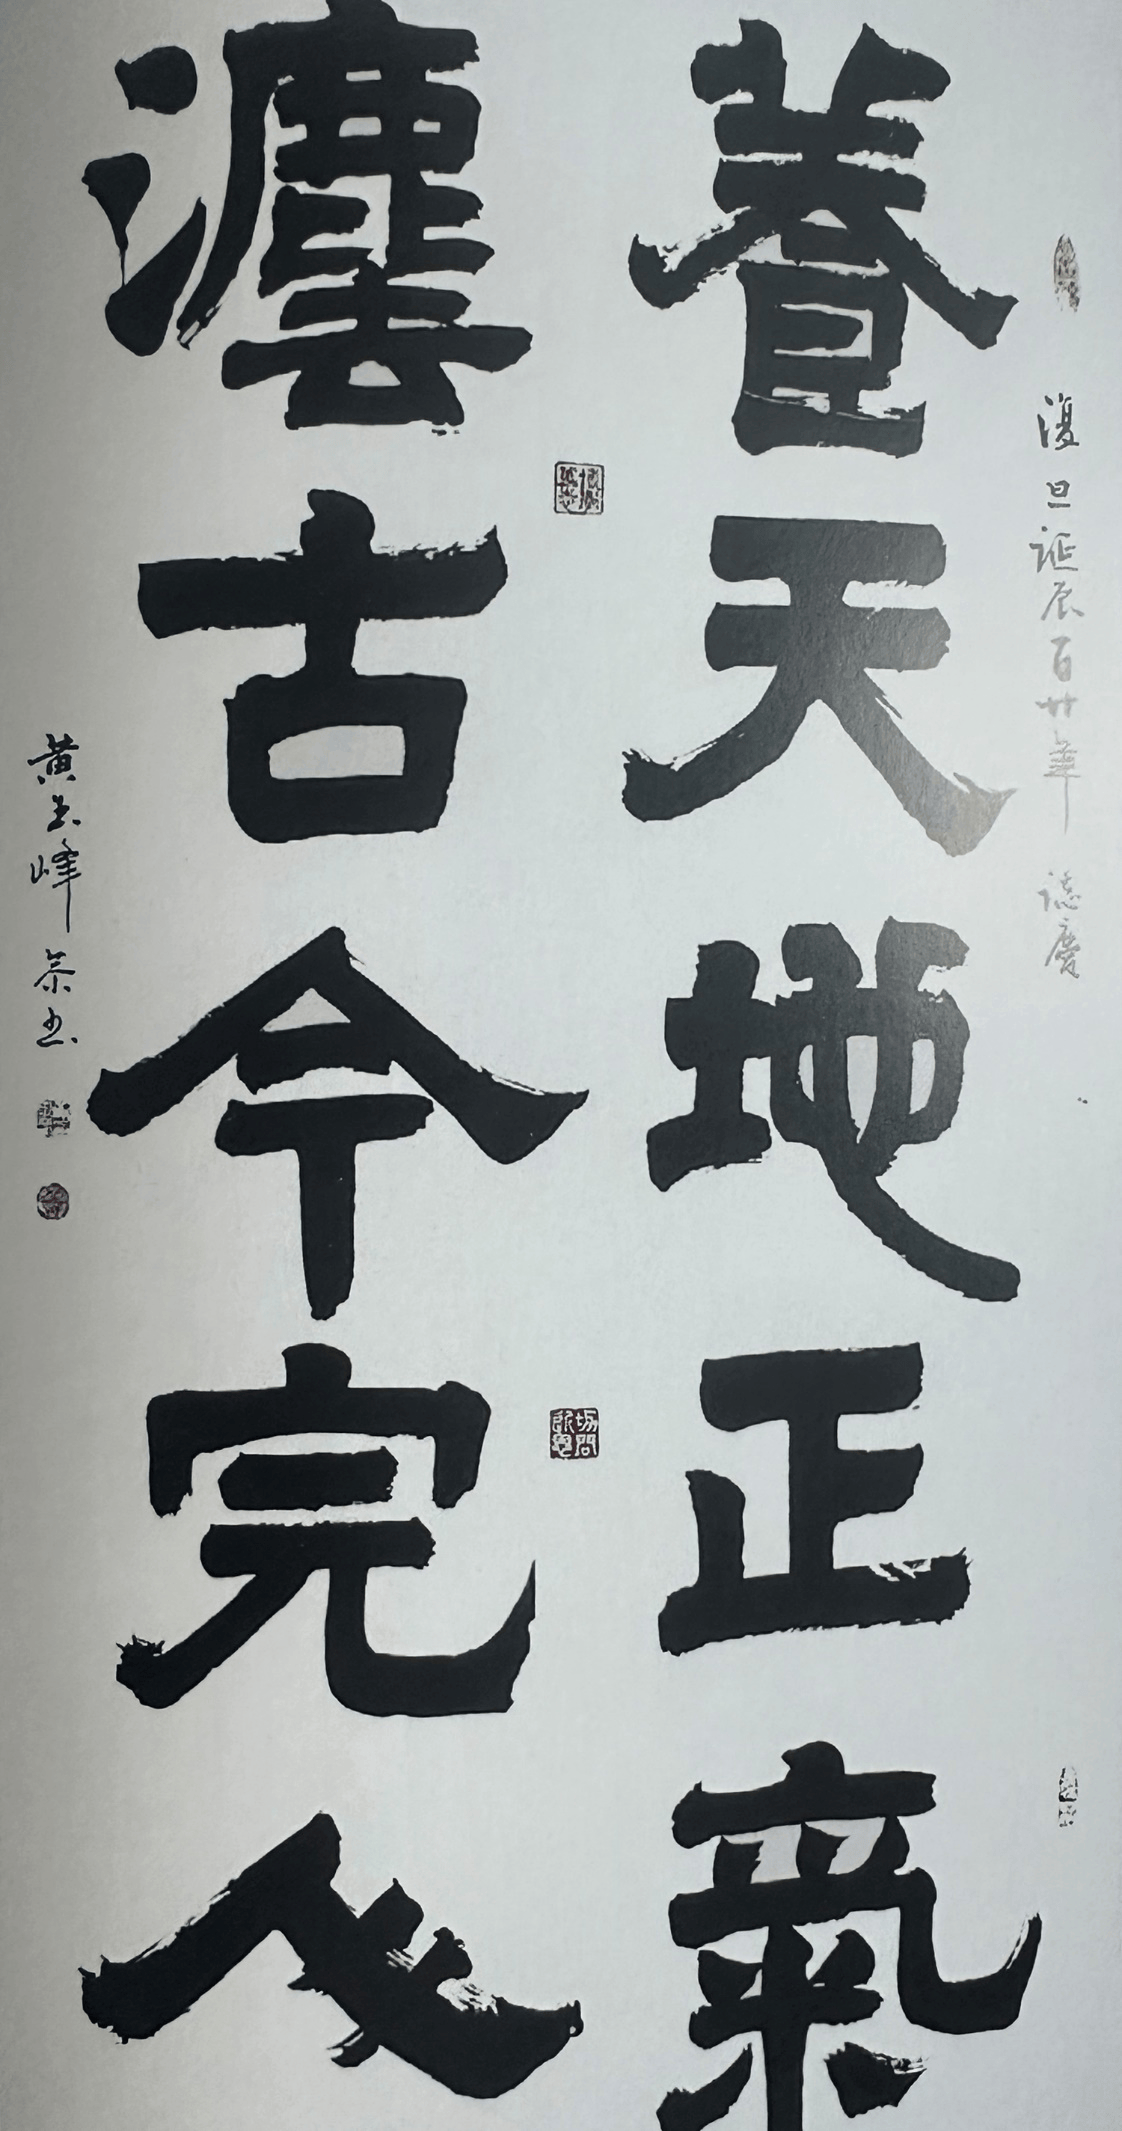 復旦誕辰百廿年 誌慶
養天地正氣
灋古今完人
黄玉峰 恭书